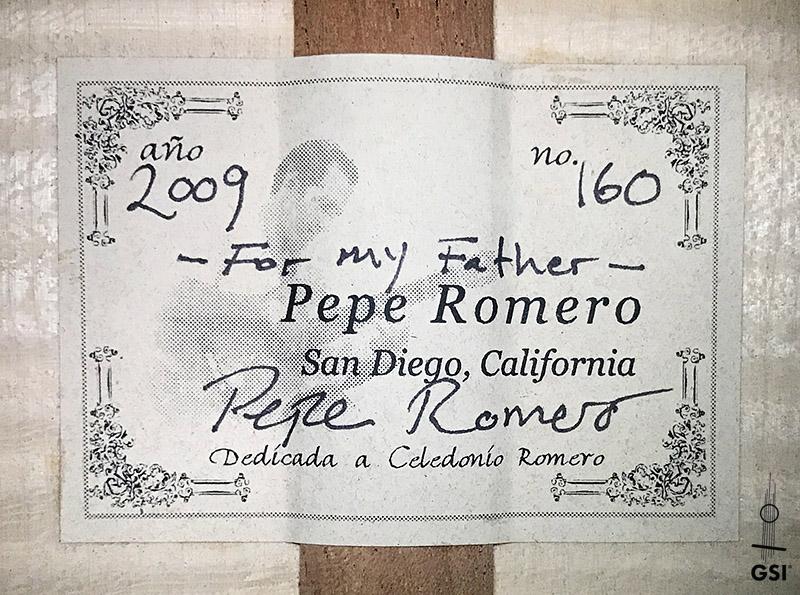 año no.
2009 160
- For my Father -
Pepe Romero
San Diego, California
Pepe Romero
Dedicada a Celedonío Romero
GSI